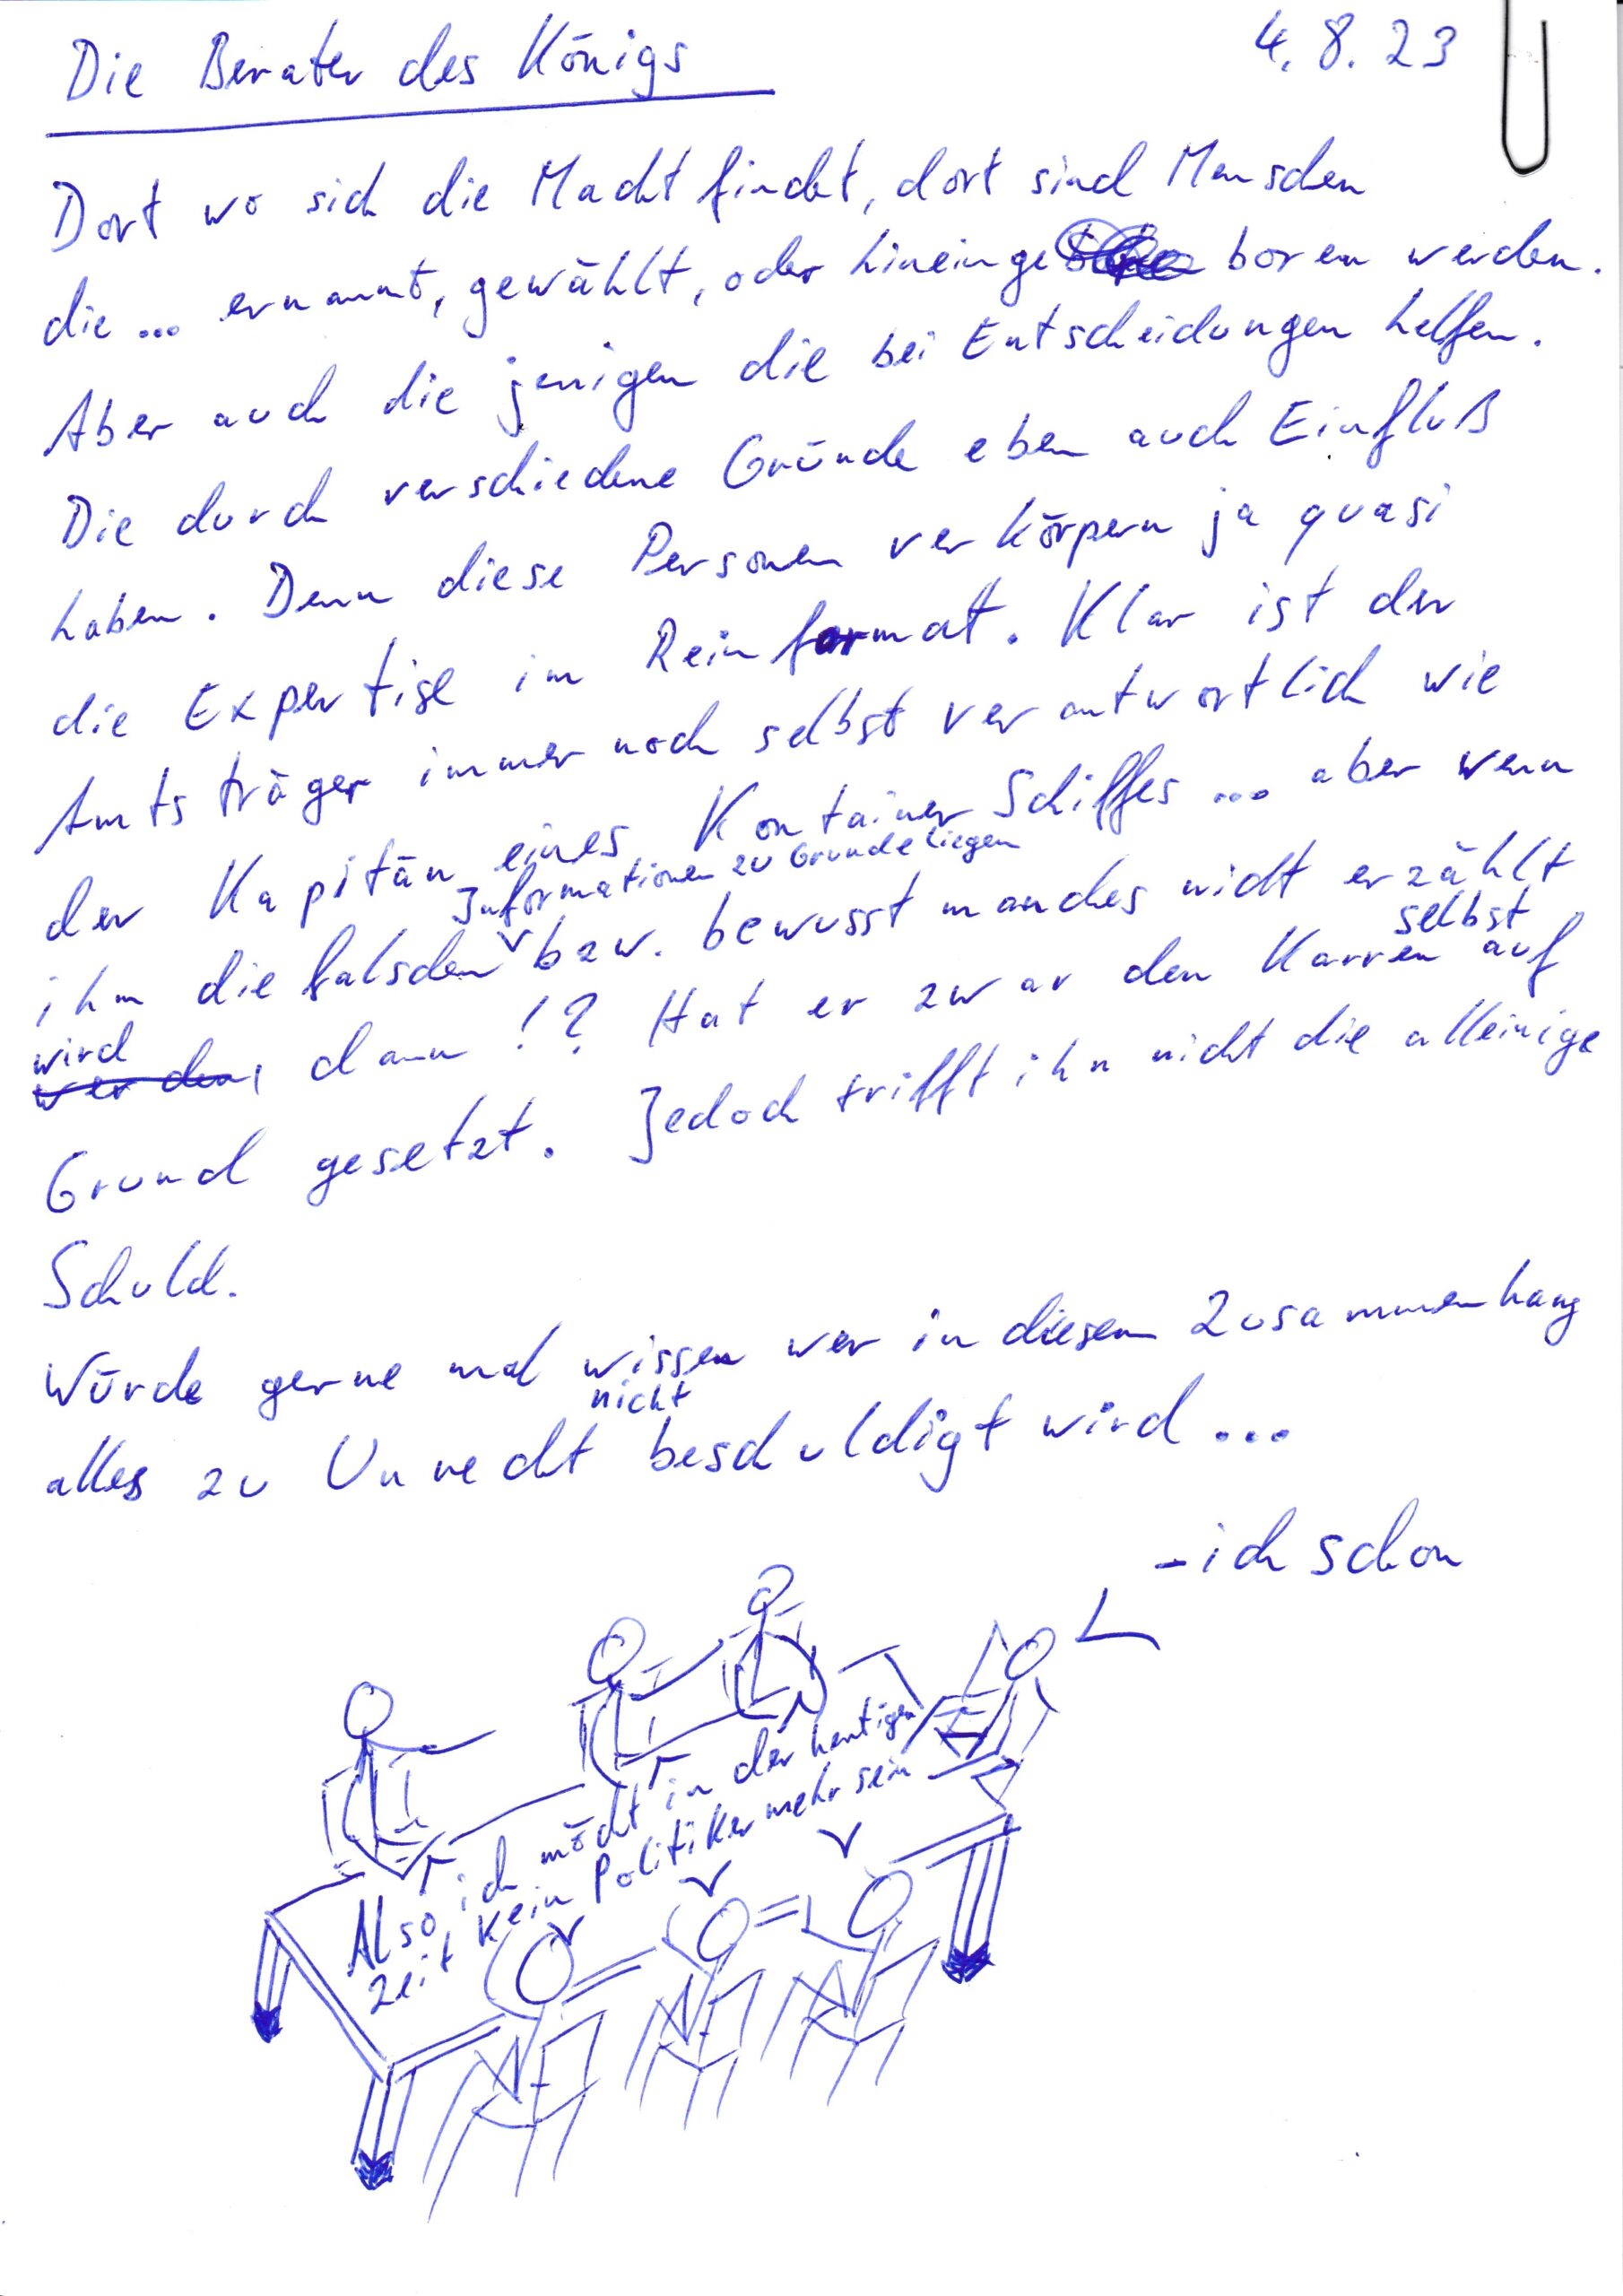 Die Berater des Königs
4.8.23
Dort wo sich die Macht findet, dort sind Menschen
die ... ernannt, gewählt, oder hineinge boren werden.
Aber auch die jenigen die bei Entscheidungen helfen.
Die durch verschiedene Gründe eben auch Einfluß
haben. Denn diese Personen verkörpern ja quasi
die Expertise im Reinformat. Klar ist der
Amtsträger immer noch selbst verantwortlich wie
der Kapitän eines Kontainer Schiffes ... aber wenn
Informationen zu Grunde liegen
ihm die falschen bzw. bewusst manches nicht erzählt
wird
werden, dann !? Hat er zwar den Karren selbst auf
Grund gesetzt. Jedoch trifft ihn nicht die alleinige
Schuld.
Würde gerne mal wissen wer in diesem Zusammenhang
nicht
alles zu Unrecht beschuldigt wird ...
- ich schon
Also, ich möcht in der heutigen
Zeit kein Politiker mehr sein